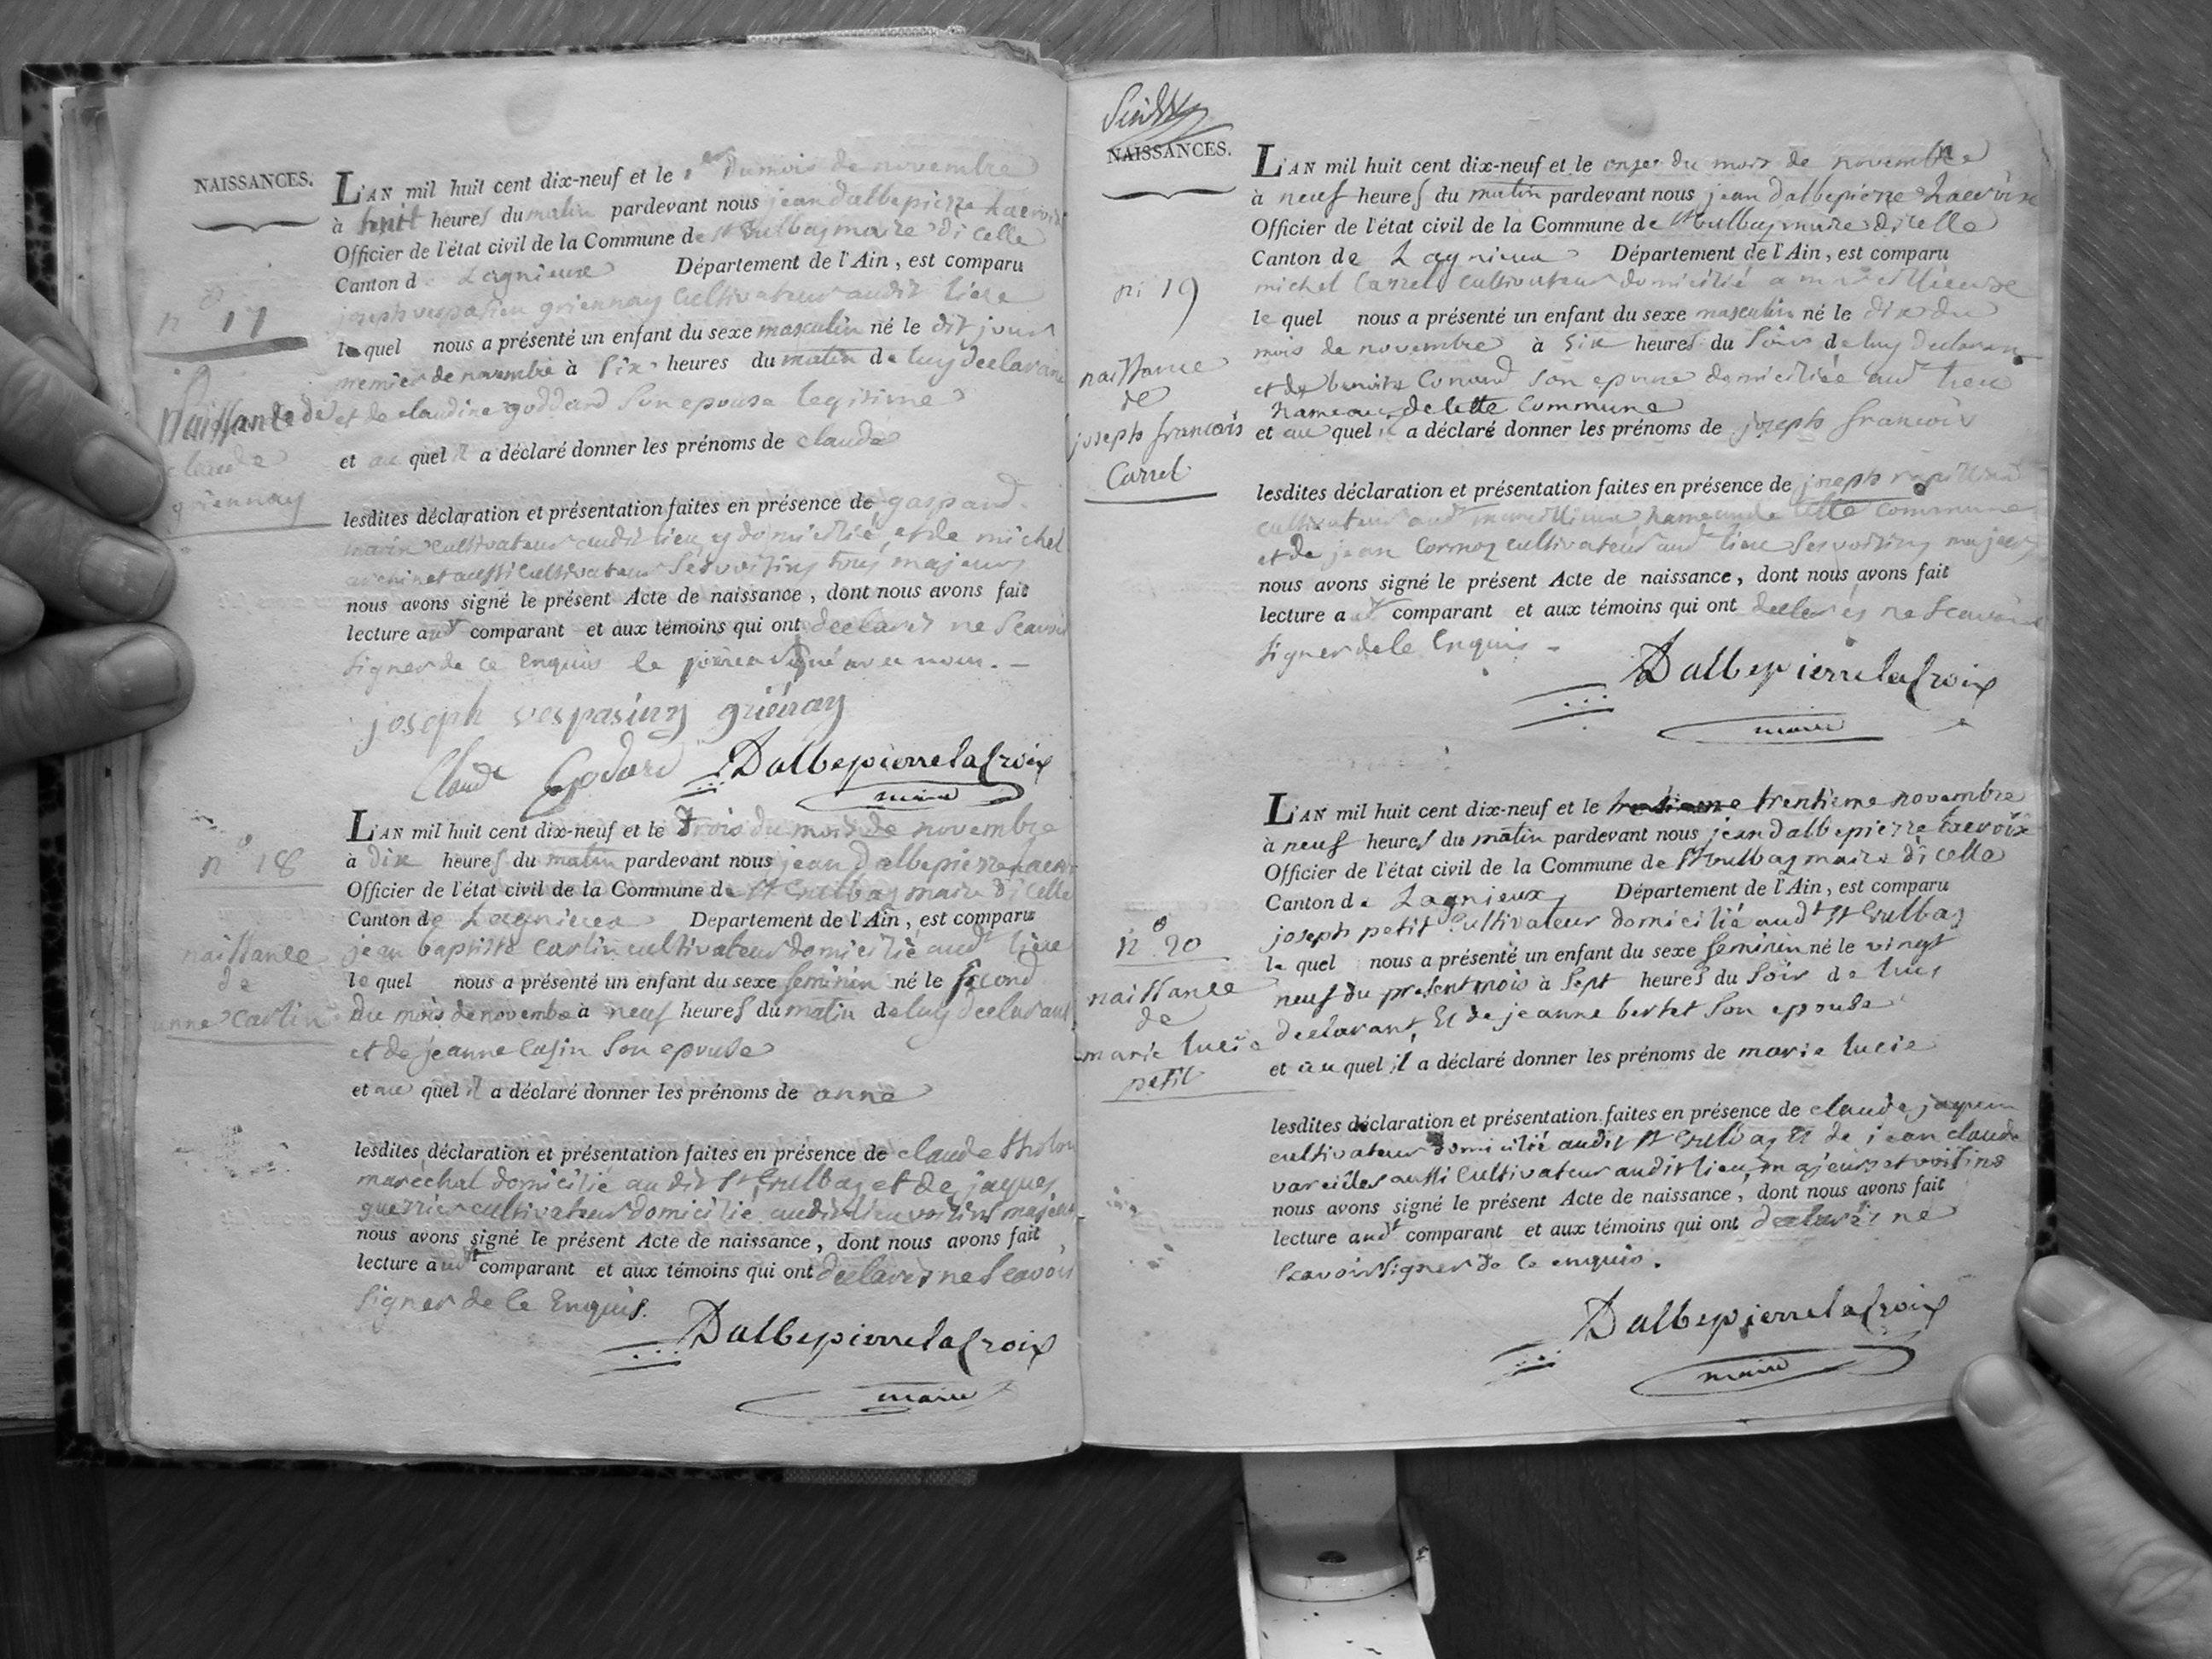 NAISSANCES.
L'AN mil huit cent dix-neuf et le 1er du mois de novembre
à huit heures du matin pardevant nous jean dalbepierre lacroix
Officier de l'état civil de la Commune de St Vulbas maire dicelle
Canton d Lagnieux Département de l'Ain, est comparu
joseph vespasien griennay cultivateur audit lieu
n° 17
le quel nous a présenté un enfant du sexe masculin né le dit jour
premier de novembre à six heures du matin de luy declarant
Naissance de
claude
griennay
et de claudine goddard son epouse legitime
et au quel il a déclaré donner les prénoms de claude
lesdites déclaration et présentation faites en présence de gaspard
cultivateur audit lieu y domicilié, et de michel
aussi cultivateur ses voisins tous majeurs
nous avons signé le présent Acte de naissance, dont nous avons fait
lecture audt comparant et aux témoins qui ont declarés ne scavoir
signer de ce enquis le père a signé avec nous. -
joseph vespasien griénay
Claude Godard Dalbepierrelacroix
maire
L'AN mil huit cent dix-neuf et le trois du mois de novembre
à dix heures du matin pardevant nous jean dalbepierre lacroix
Officier de l'état civil de la Commune de St Vulbas maire dicelle
n° 18
Canton de Lagnieux Departement de l'Ain, est comparu
jean baptiste carlin cultivateur domicilié audt lieu
naissance
de
anne carlin
le quel nous a présenté un enfant du sexe feminin né le second
du mois de novembre à neuf heures du matin de luy declarant
et de jeanne son epouse
et au quel il a déclaré donner les prénoms de anne
lesdites déclaration et présentation faites en présence de claude
maréchal domicilié audit St Vulbas et de jaques
guerrier cultivateur domicilié audit lieu voisins majeurs
nous avons signé le présent Acte de naissance, dont nous avons fait
lecture audt comparant et aux témoins qui ont declarés ne scavoir
signer de ce enquis.
Dalbepierrelacroix
maire
NAISSANCES.
L'AN mil huit cent dix-neuf et le onze du mois de novembre
à neuf heures du matin pardevant nous jean dalbepierre lacroix
Officier de l'état civil de la Commune de St Vulbas maire dicelle
Canton de Lagnieux Département de l'Ain, est comparu
n° 19
michel Carrel cultivateur domicilié a marcillieux
le quel nous a présenté un enfant du sexe masculin né le dix du
mois de novembre à six heures du soir de luy declarant
naissance
de
joseph francois
Carrel
et de benoite Conand son epouse domiciliée audt lieu
hameau de cette commune
et au quel il a déclaré donner les prénoms de joseph francois
lesdites déclaration et présentation faites en présence de joseph
cultivateur audt marcillieux hameau de cette commune
et de jean Cormoz cultivateur audt lieu ses voisins majeurs
nous avons signé le présent Acte de naissance, dont nous avons fait
lecture audt comparant et aux témoins qui ont declarés ne scavoir
signer de ce enquis -
Dalbepierrelacroix
maire
L'AN mil huit cent dix-neuf et le trentieme novembre
à neuf heures du matin pardevant nous jean dalbepierre lacroix
Officier de l'état civil de la Commune de St Vulbas maire dicelle
Canton de Lagnieux, Département de l'Ain, est comparu
n° 20
joseph petit cultivateur domicilié audt St Vulbas
le quel nous a présenté un enfant du sexe feminin né le vingt
neuf du present mois à sept heures du soir de luy
naissance
de
marie lucie
petit
declarant, Et de jeanne bertet son epouse
et au quel il a déclaré donner les prénoms de marie lucie
lesdites déclaration et présentation faites en présence de claude
cultivateur domicilié audit St Vulbas Et de jean claude
aussi cultivateur audit lieu, majeurs et voisins
nous avons signé le présent Acte de naissance, dont nous avons fait
lecture audt comparant et aux témoins qui ont declarés ne
scavoir signer de ce enquis.
Dalbepierrelacroix
maire